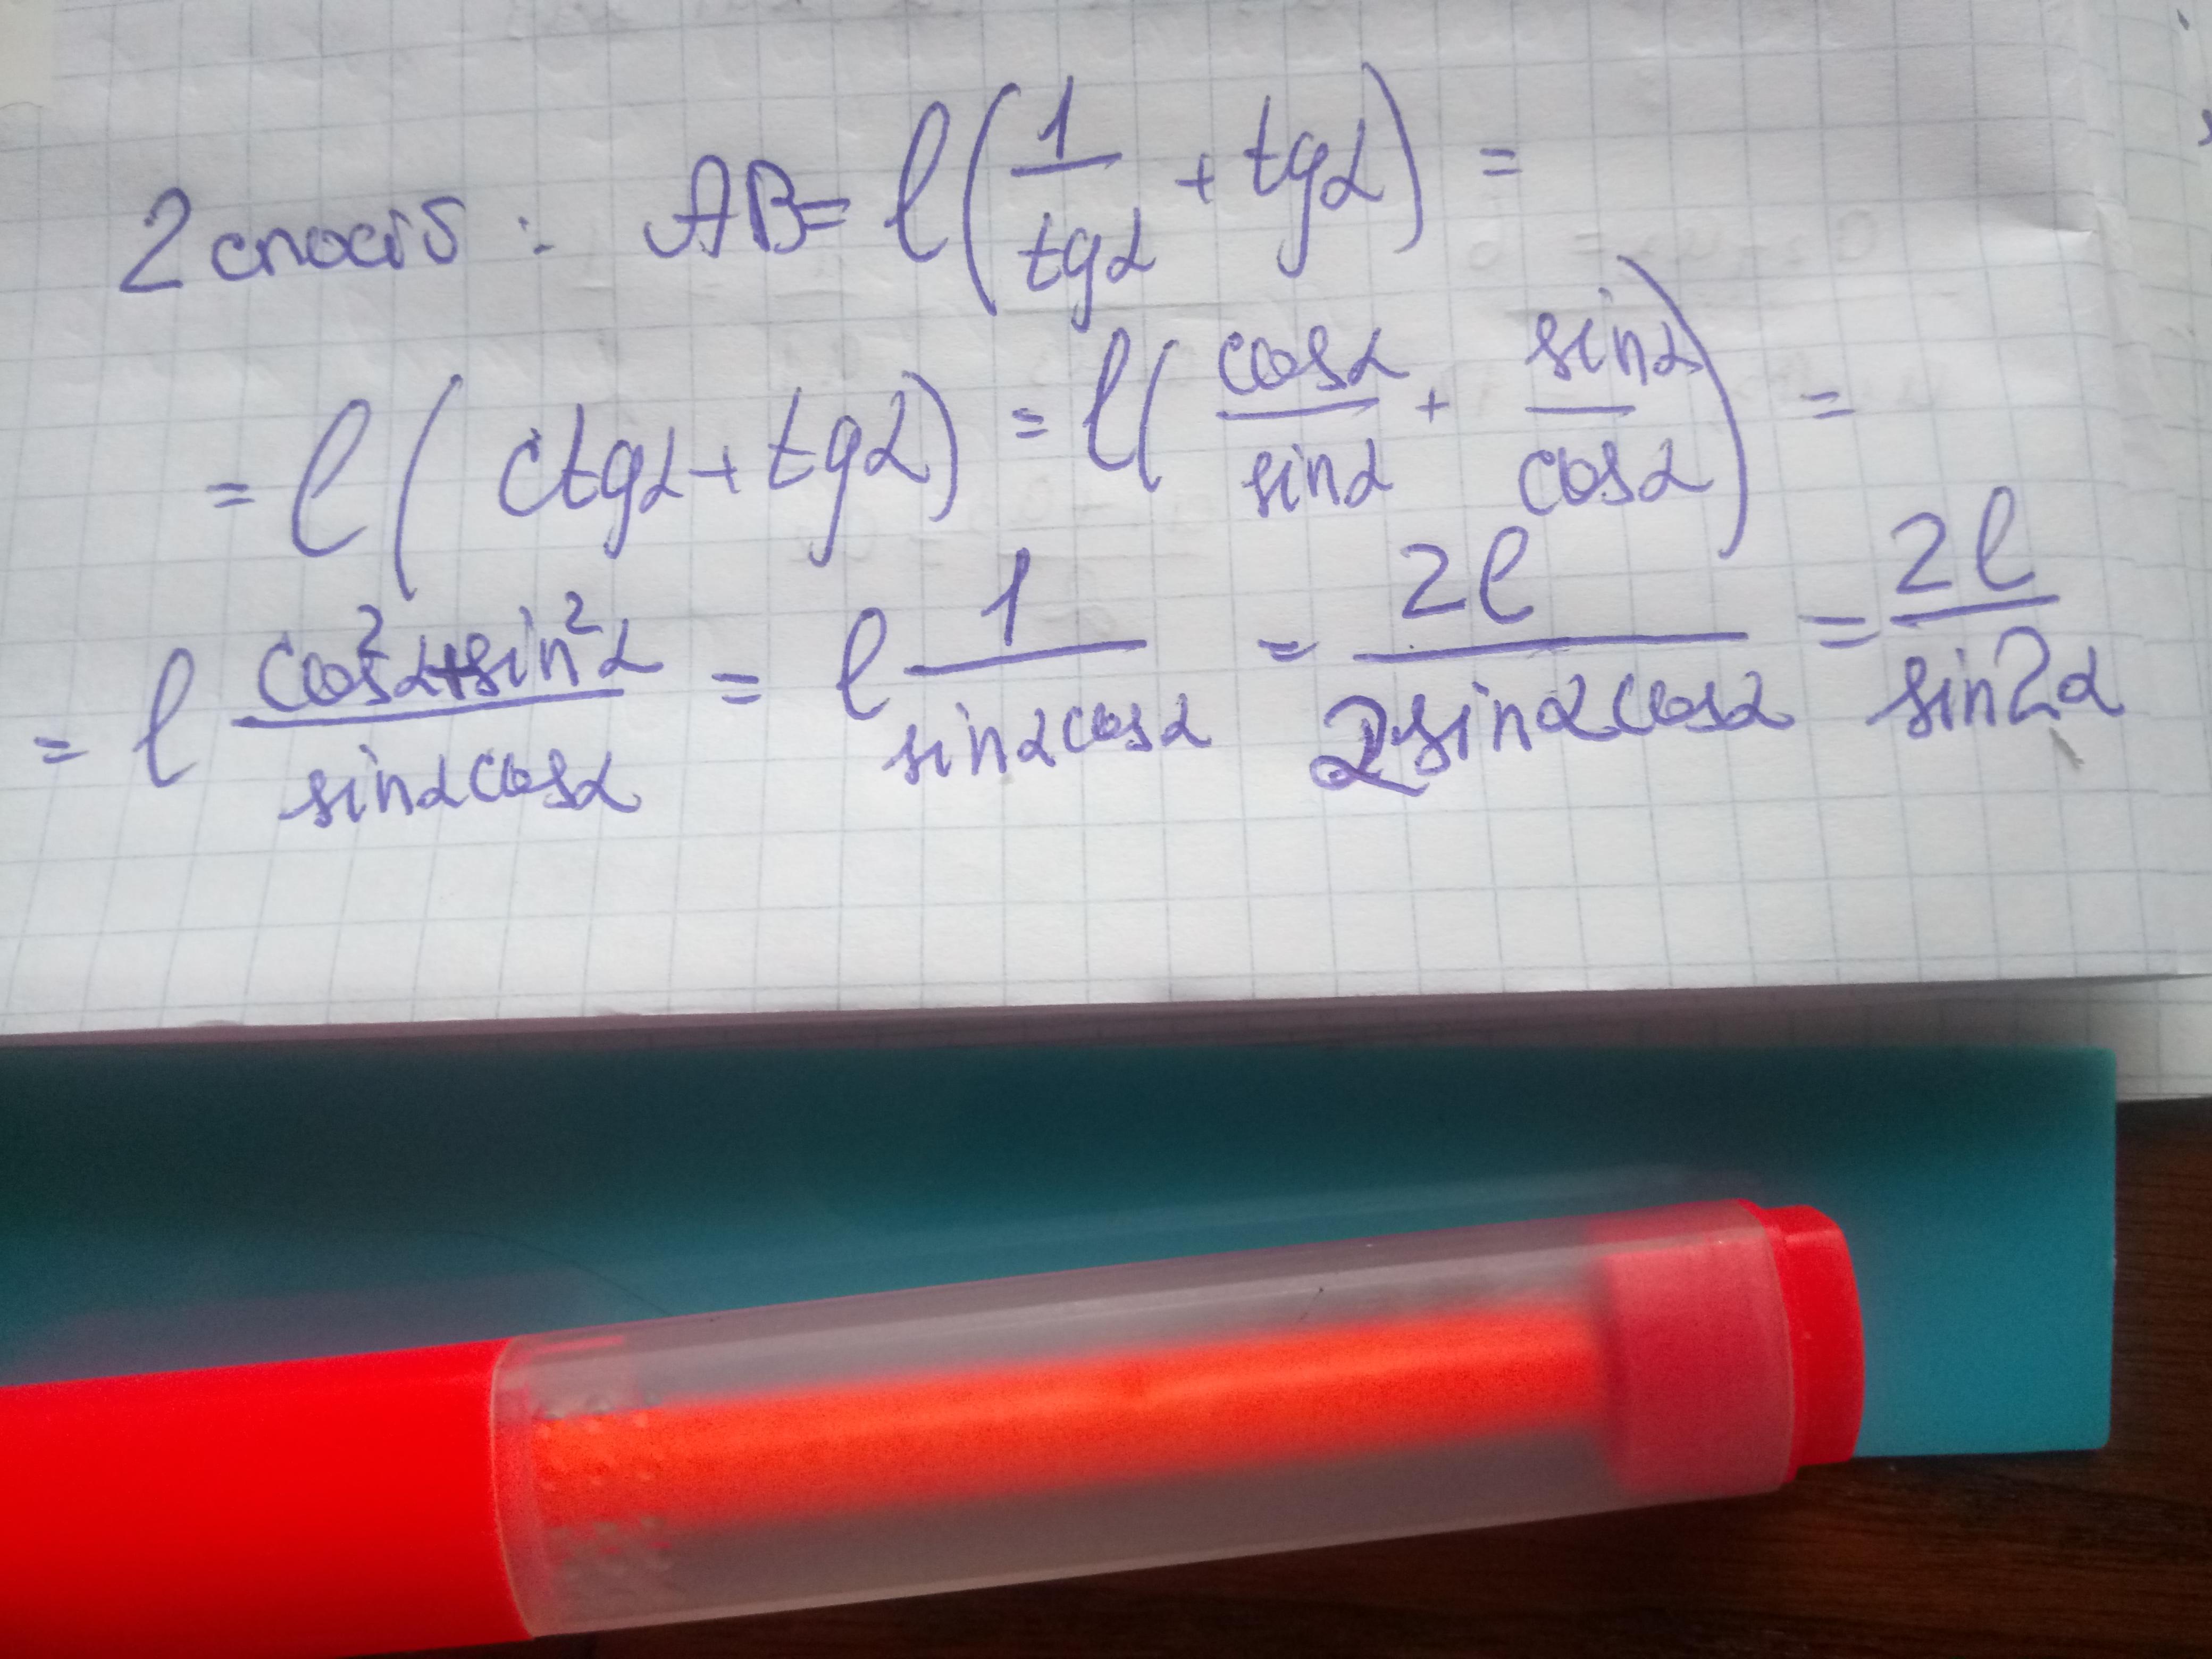 2 спосіб : AB = l(1/tgα + tgα) =
= l(ctgα + tgα) = l(cosα/sinα + sinα/cosα) =
= l (cos²α+sin²α)/(sinα cosα) = l 1/(sinα cosα) = 2l/(2sinα cosα) = 2l/sin2α